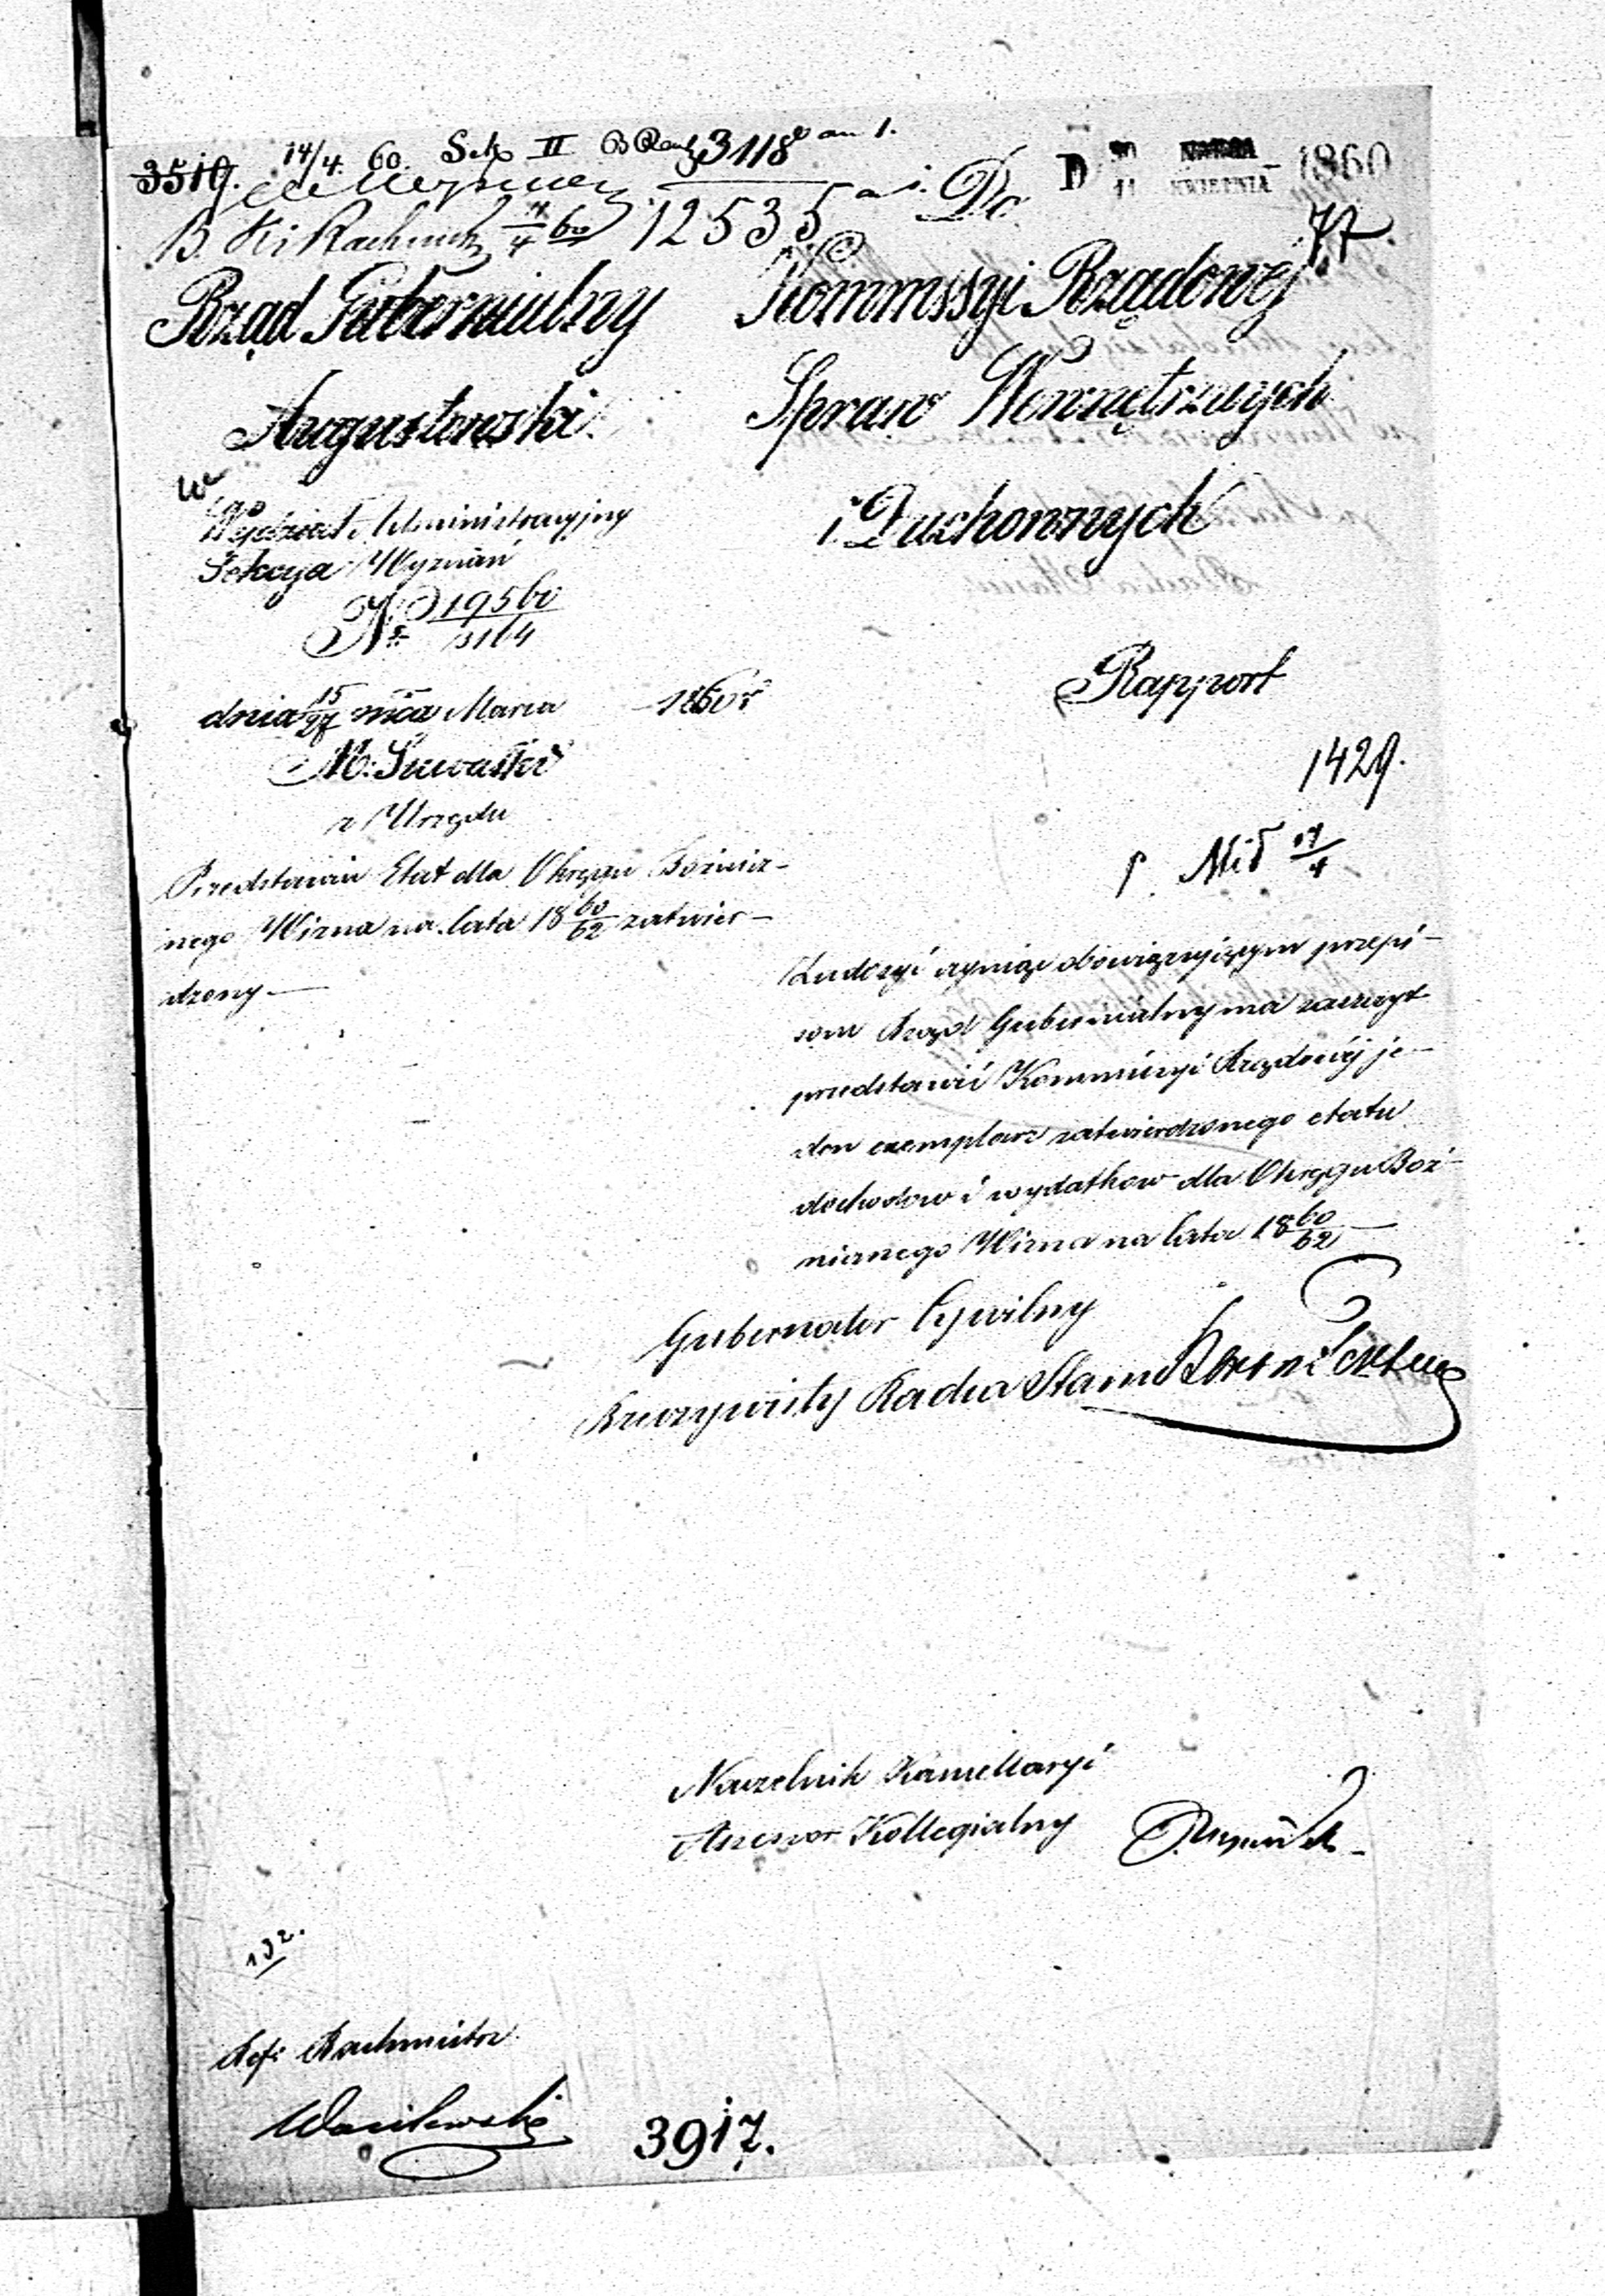 3519. 14/4 60. II 3118
B. 4/60 12535 Do D 30 MARCA 11 KWIETNIA 1860
77.
Rząd Gubernialny
Augustowski
w
Wydział Administracyjny
Sekcya Wyznań
N: 19560/3164
dnia 15/27 mca Marca 1860 r
M. Suwałki
z Urzędu
Przedstawia Etat dla Okręgu Bożnicz-
nego Wizna na lata 18 60/62 zatwier-
dzony.—
Kommissyi Rządowej
Spraw Wewnętrznych
i Duchownych
Rapport
1429.
17/4
Zadosyć czyniąc obowiązującym przepi-
som Rząd Gubernialny ma zaszczyt
przedstawić Kommissyi Rządowej je-
den exemplarz zatwierdzonego etatu
dochodow i wydatkow dla Okręgu Boż-
nicznego Wizna na lata 18 60/62 —
Gubernator Cywilny
Rzeczywisty Radca Stanu
Naczelnik Kancellaryi
Assessor Kollegialny
132.
Ref: Rachmistrz
Wasilewski
3917.